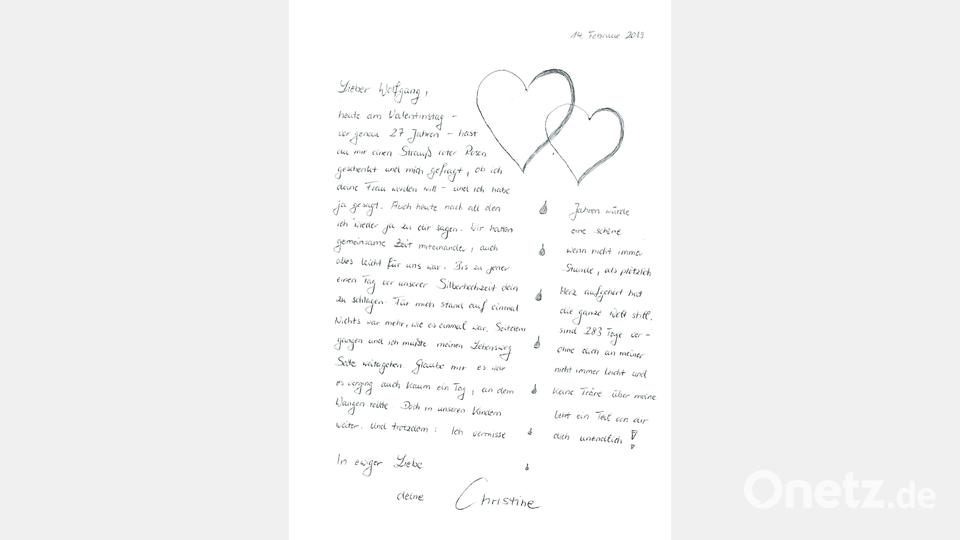 14. Februar 2019
Lieber Wolfgang,
heute am Valentinstag -
vor genau 27 Jahren - hast
du mir einen Strauß roter Rosen
geschenkt und mich gefragt, ob ich
deine Frau werden will - und ich habe
ja gesagt. Auch heute nach all den Jahren würde
ich wieder ja zu dir sagen. Wir hatten eine schöne
gemeinsame Zeit miteinander, auch wenn nicht immer
alles leicht für uns war. Bis zu jener Stunde, als plötzlich
einen Tag vor unserer Silberhochzeit dein Herz aufgehört hat
zu schlagen. Für mich stand auf einmal die ganze Welt still.
Nichts war mehr, wie es einmal war. Seitdem sind 283 Tage ver-
gangen und ich mußte meinen Lebensweg ohne dich an meiner
Seite weitergehen. Glaube mir es war nicht immer leicht und
es verging auch kaum ein Tag, an dem keine Träne über meine
Wangen rollte. Doch in unseren Kindern lebt ein Teil von dir
weiter. Und trotzdem: Ich vermisse dich unendlich!
In ewiger Liebe
deine Christine
Onetz.de